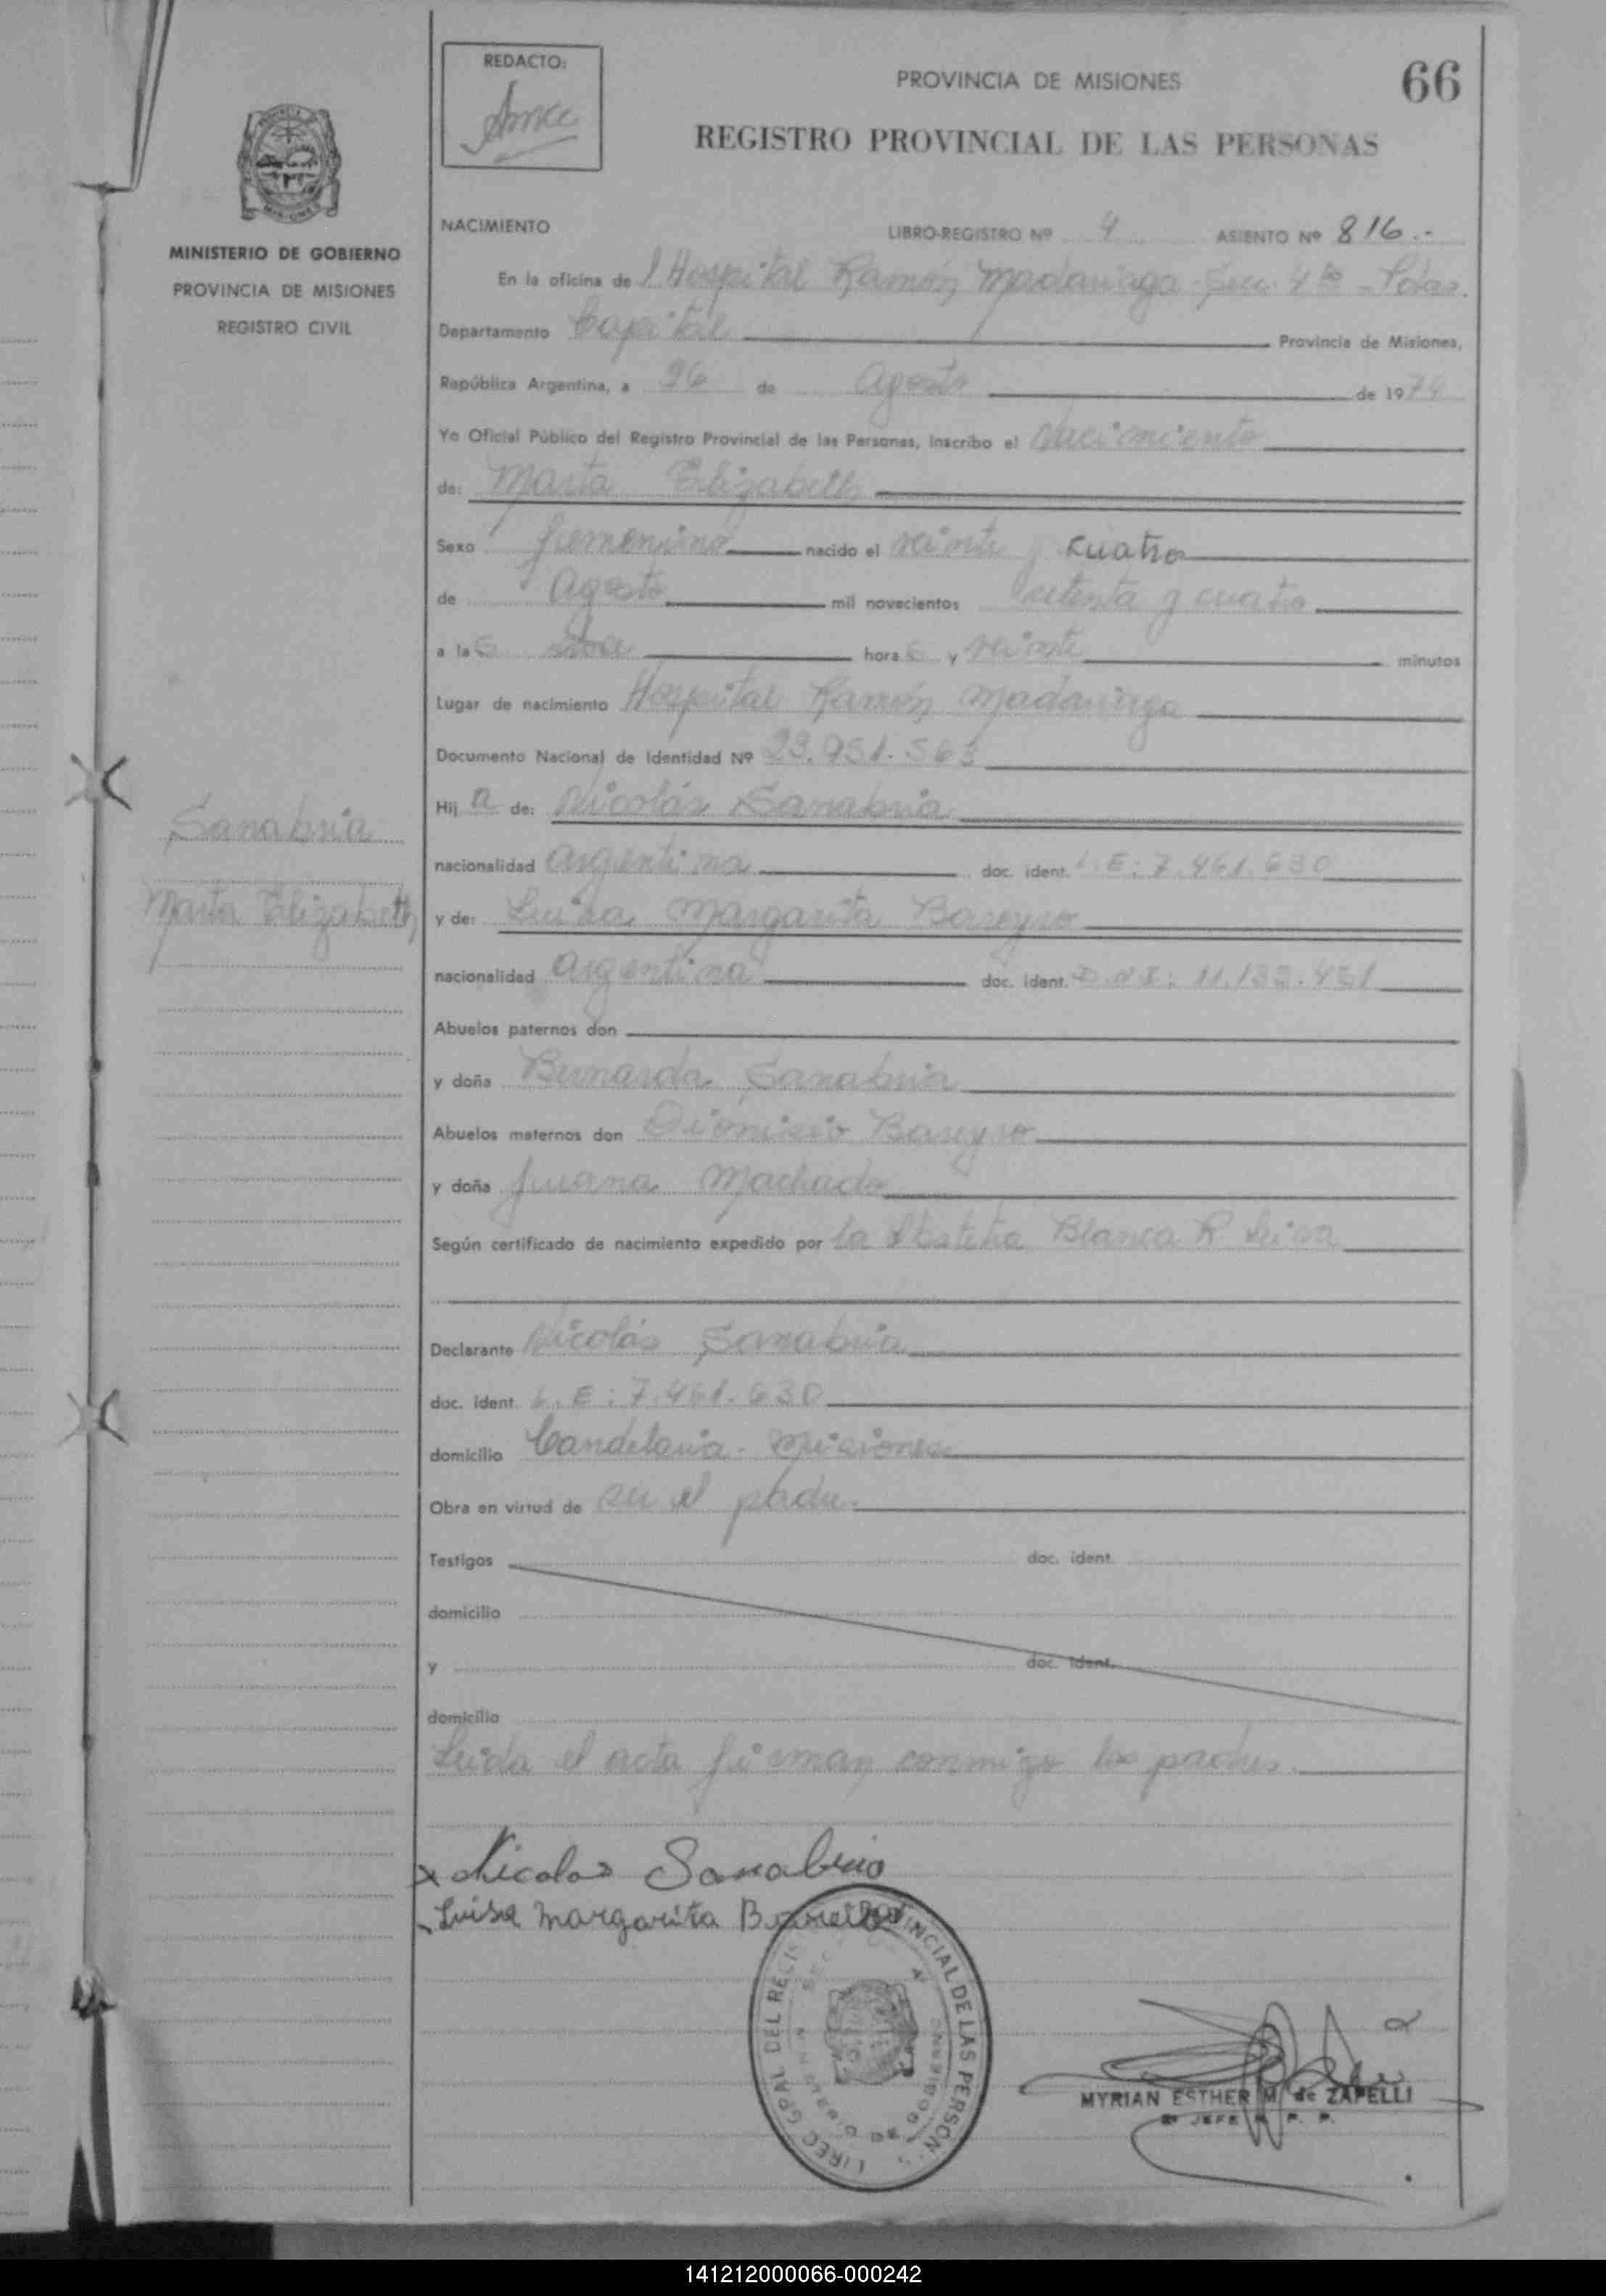 REDACTO:
PROVINCIA DE MISIONES
66
REGISTRO PROVINCIAL DE LAS PERSONAS
MINISTERIO DE GOBIERNO
PROVINCIA DE MISIONES
REGISTRO CIVIL
NACIMIENTO LIBRO-REGISTRO Nº 4 ASIENTO Nº 816.-
En la oficina de l Hospital Ramón Madariaga - Secc. 4ta - Pdas.
Departamento Capital Provincia de Misiones,
República Argentina, a 26 de Agosto de 1974
Yo Oficial Público del Registro Provincial de las Personas, inscribo el Nacimiento
de: Marta Elizabeth
Sexo femenino nacido el veinte y cuatro
de Agosto mil novecientos setenta y cuatro
a la hora y veinte minutos
Lugar de nacimiento Hospital Ramón Madariaga
Documento Nacional de Identidad Nº 23.951.563
Hij a de: Nicolás Sanabria
Sanabria
Marta Elizabeth
nacionalidad argentina doc. ident. L.E: 7.461.630
y de: Luisa Margarita Bareyro
nacionalidad argentina doc. ident. D.N.I: 11.132.451
Abuelos paternos don
y doña Bernarda Sanabria
Abuelos maternos don Dionisio Bareyro
y doña Juana Machado
Según certificado de nacimiento expedido por la Obstetra Blanca R Leiva
Declarante Nicolás Sanabria
doc. ident. L.E: 7.461.630
domicilio Candelaria - Misiones
Obra en virtud de ser el padre.
Testigos doc. ident.
domicilio
y doc. ident.
domicilio
Leida el acta firman conmigo los padres.
x Nicolas Sanabria
Luisa Margarita Bareiro
MYRIAN ESTHER M de ZAPELLI
2º JEFE R. P. P.
141212000066-000242